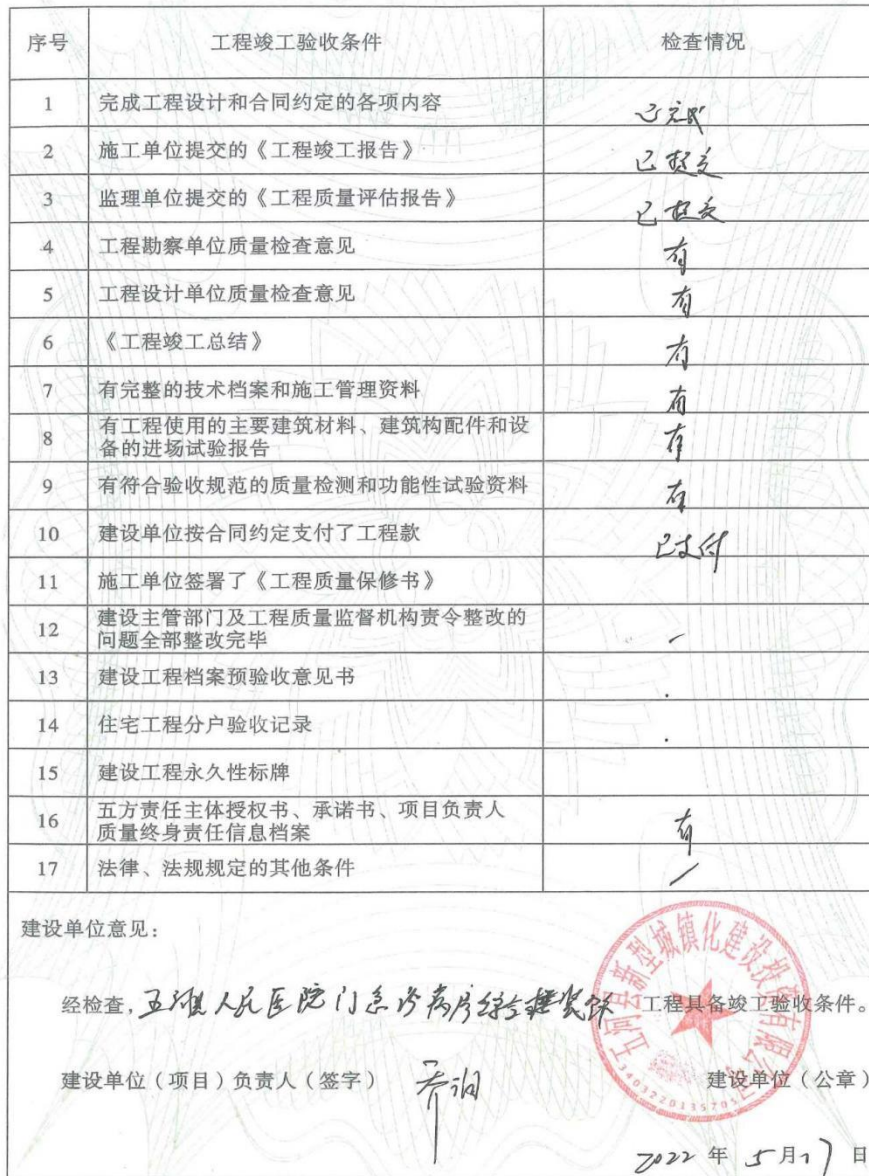 序号 工程竣工验收条件 检查情况
1 完成工程设计和合同约定的各项内容 已完成
2 施工单位提交的《工程竣工报告》 已提交
3 监理单位提交的《工程质量评估报告》 已提交
4 工程勘察单位质量检查意见 有
5 工程设计单位质量检查意见 有
6 《工程竣工总结》 有
7 有完整的技术档案和施工管理资料 有
8 有工程使用的主要建筑材料、建筑构配件和设
备的进场试验报告 有
9 有符合验收规范的质量检测和功能性试验资料 有
10 建设单位按合同约定支付了工程款 已支付
11 施工单位签署了《工程质量保修书》
12 建设主管部门及工程质量监督机构责令整改的
问题全部整改完毕
13 建设工程档案预验收意见书
14 住宅工程分户验收记录
15 建设工程永久性标牌
16 五方责任主体授权书、承诺书、项目负责人
质量终身责任信息档案 有
17 法律、法规规定的其他条件 /
建设单位意见：
五河县新型城镇化建设投资有限公司
经检查，五河县人民医院门急诊病房综合楼装饰 工程具备竣工验收条件。
建设单位（项目）负责人（签字） 建设单位（公章）
2022 年 5 月 17 日